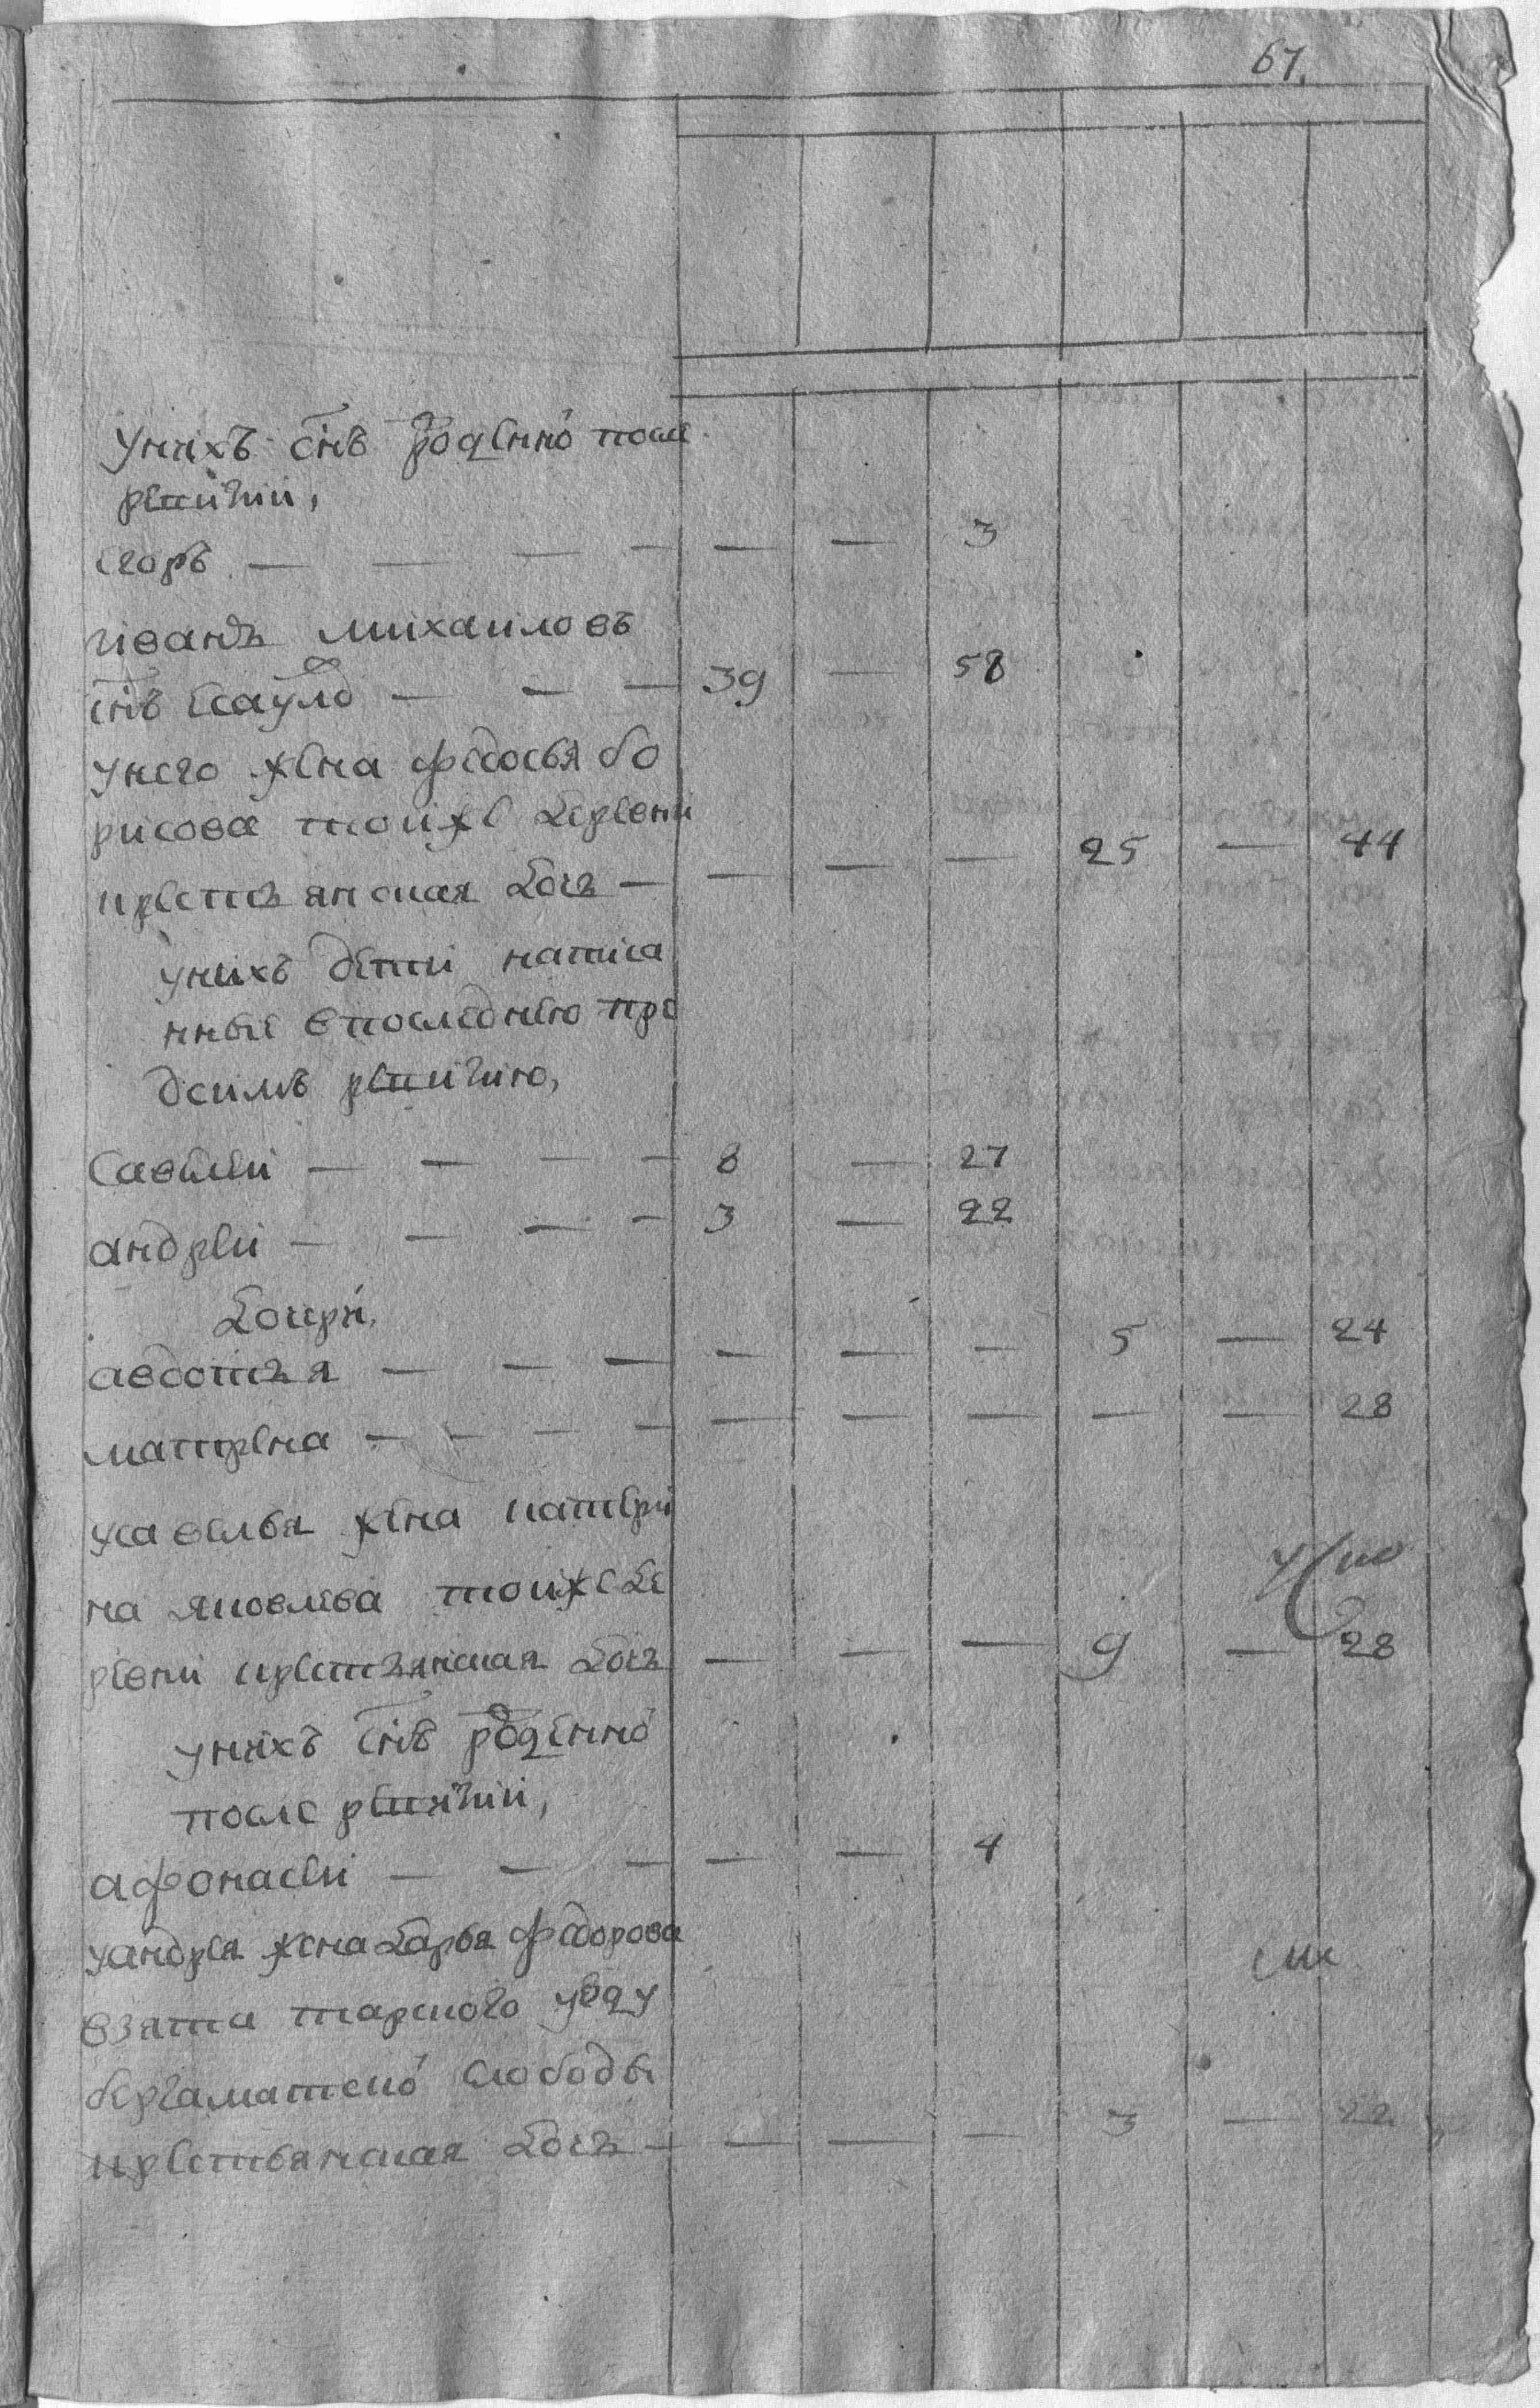 67.
унихъ снъ рожденно после
ревизии,
егоръ — — — — — — 3
иванъ михаиловъ
снъ есаулов — — — 39 — 58
унего жена федосья бо
рисова тоиже деревни
крестьянская дочь — — — — 25 — 44
унихъ дети написа
нные впоследнею пре
дсимъ ревизию,
савелеи — — — — 8 — 27
андреи — — — — 3 — 22
дочери,
авдотья — — — — — — 5 — 24
матрена — — — — — — — — — 28
усавелья жена катери
на яковлева тоиже де
ревни крестьянская дочь — — — 9 — 28
унихъ снъ рожденно
после ревизии,
афонасеи — — — — — 4
уандрея жена дарья федорова
взята тарского уезду
бергаматской слободы
крестьянская дочь — — — — 3 — 22